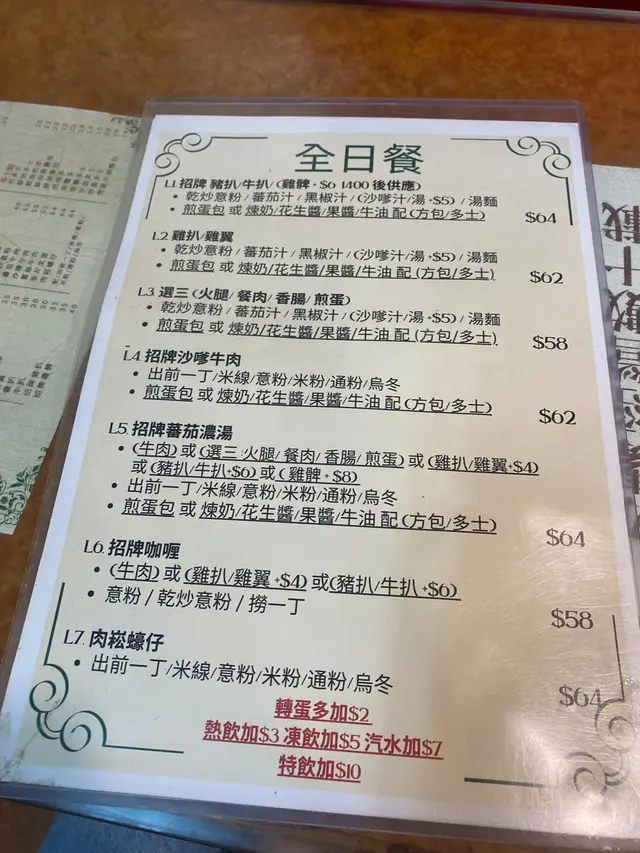 全日餐
L1. 招牌 豬扒/牛扒/ (雞髀 + $6 1400 後供應)
• 乾炒意粉 / 蕃茄汁 / 黑椒汁 / (沙嗲汁/湯 +$5) / 湯麵
• 煎蛋包 或 煉奶/花生醬/果醬/牛油 配 (方包/多士)
$64
L2. 雞扒/雞翼
• 乾炒意粉 / 蕃茄汁 / 黑椒汁 / (沙嗲汁/湯 +$5) / 湯麵
• 煎蛋包 或 煉奶/花生醬/果醬/牛油 配 (方包/多士)
$62
L3. 選三 (火腿/ 餐肉/ 香腸/ 煎蛋)
• 乾炒意粉 / 蕃茄汁 / 黑椒汁 / (沙嗲汁/湯 +$5) / 湯麵
• 煎蛋包 或 煉奶/花生醬/果醬/牛油 配 (方包/多士)
$58
L4. 招牌沙嗲牛肉
• 出前一丁/米線/意粉/米粉/通粉/烏冬
• 煎蛋包 或 煉奶/花生醬/果醬/牛油 配 (方包/多士)
$62
L5. 招牌蕃茄濃湯
• (牛肉) 或 (選三 :火腿/ 餐肉/ 香腸/ 煎蛋) 或 (雞扒/雞翼+$4)
或 (豬扒/牛扒+$6) 或 ( 雞髀 + $8)
• 出前一丁/米線/意粉/米粉/通粉/烏冬
• 煎蛋包 或 煉奶/花生醬/果醬/牛油 配 (方包/多士)
$64
L6. 招牌咖喱
• (牛肉) 或 (雞扒/雞翼 +$4) 或(豬扒/牛扒 +$6)
• 意粉 / 乾炒意粉 / 撈一丁
$58
L7. 肉崧蠔仔
• 出前一丁/米線/意粉/米粉/通粉/烏冬
$64
轉蛋多加$2
熱飲加$3 凍飲加$5 汽水加$7
特飲加$10